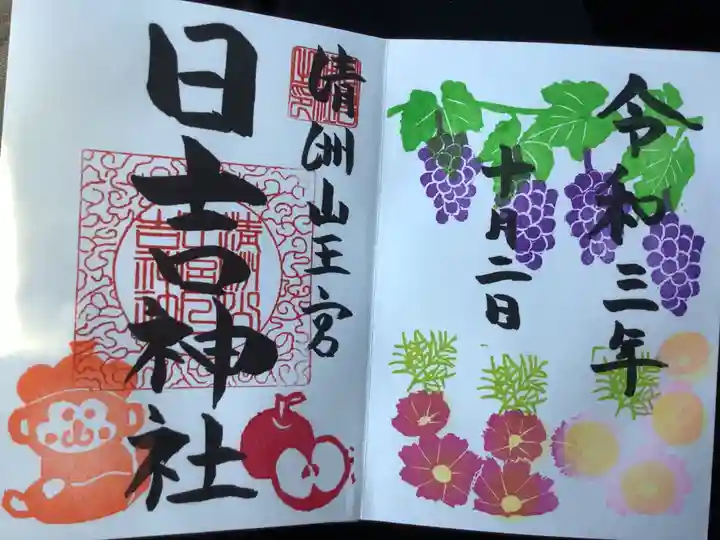 令和三年
十月二日
清洲山王宮
日吉神社